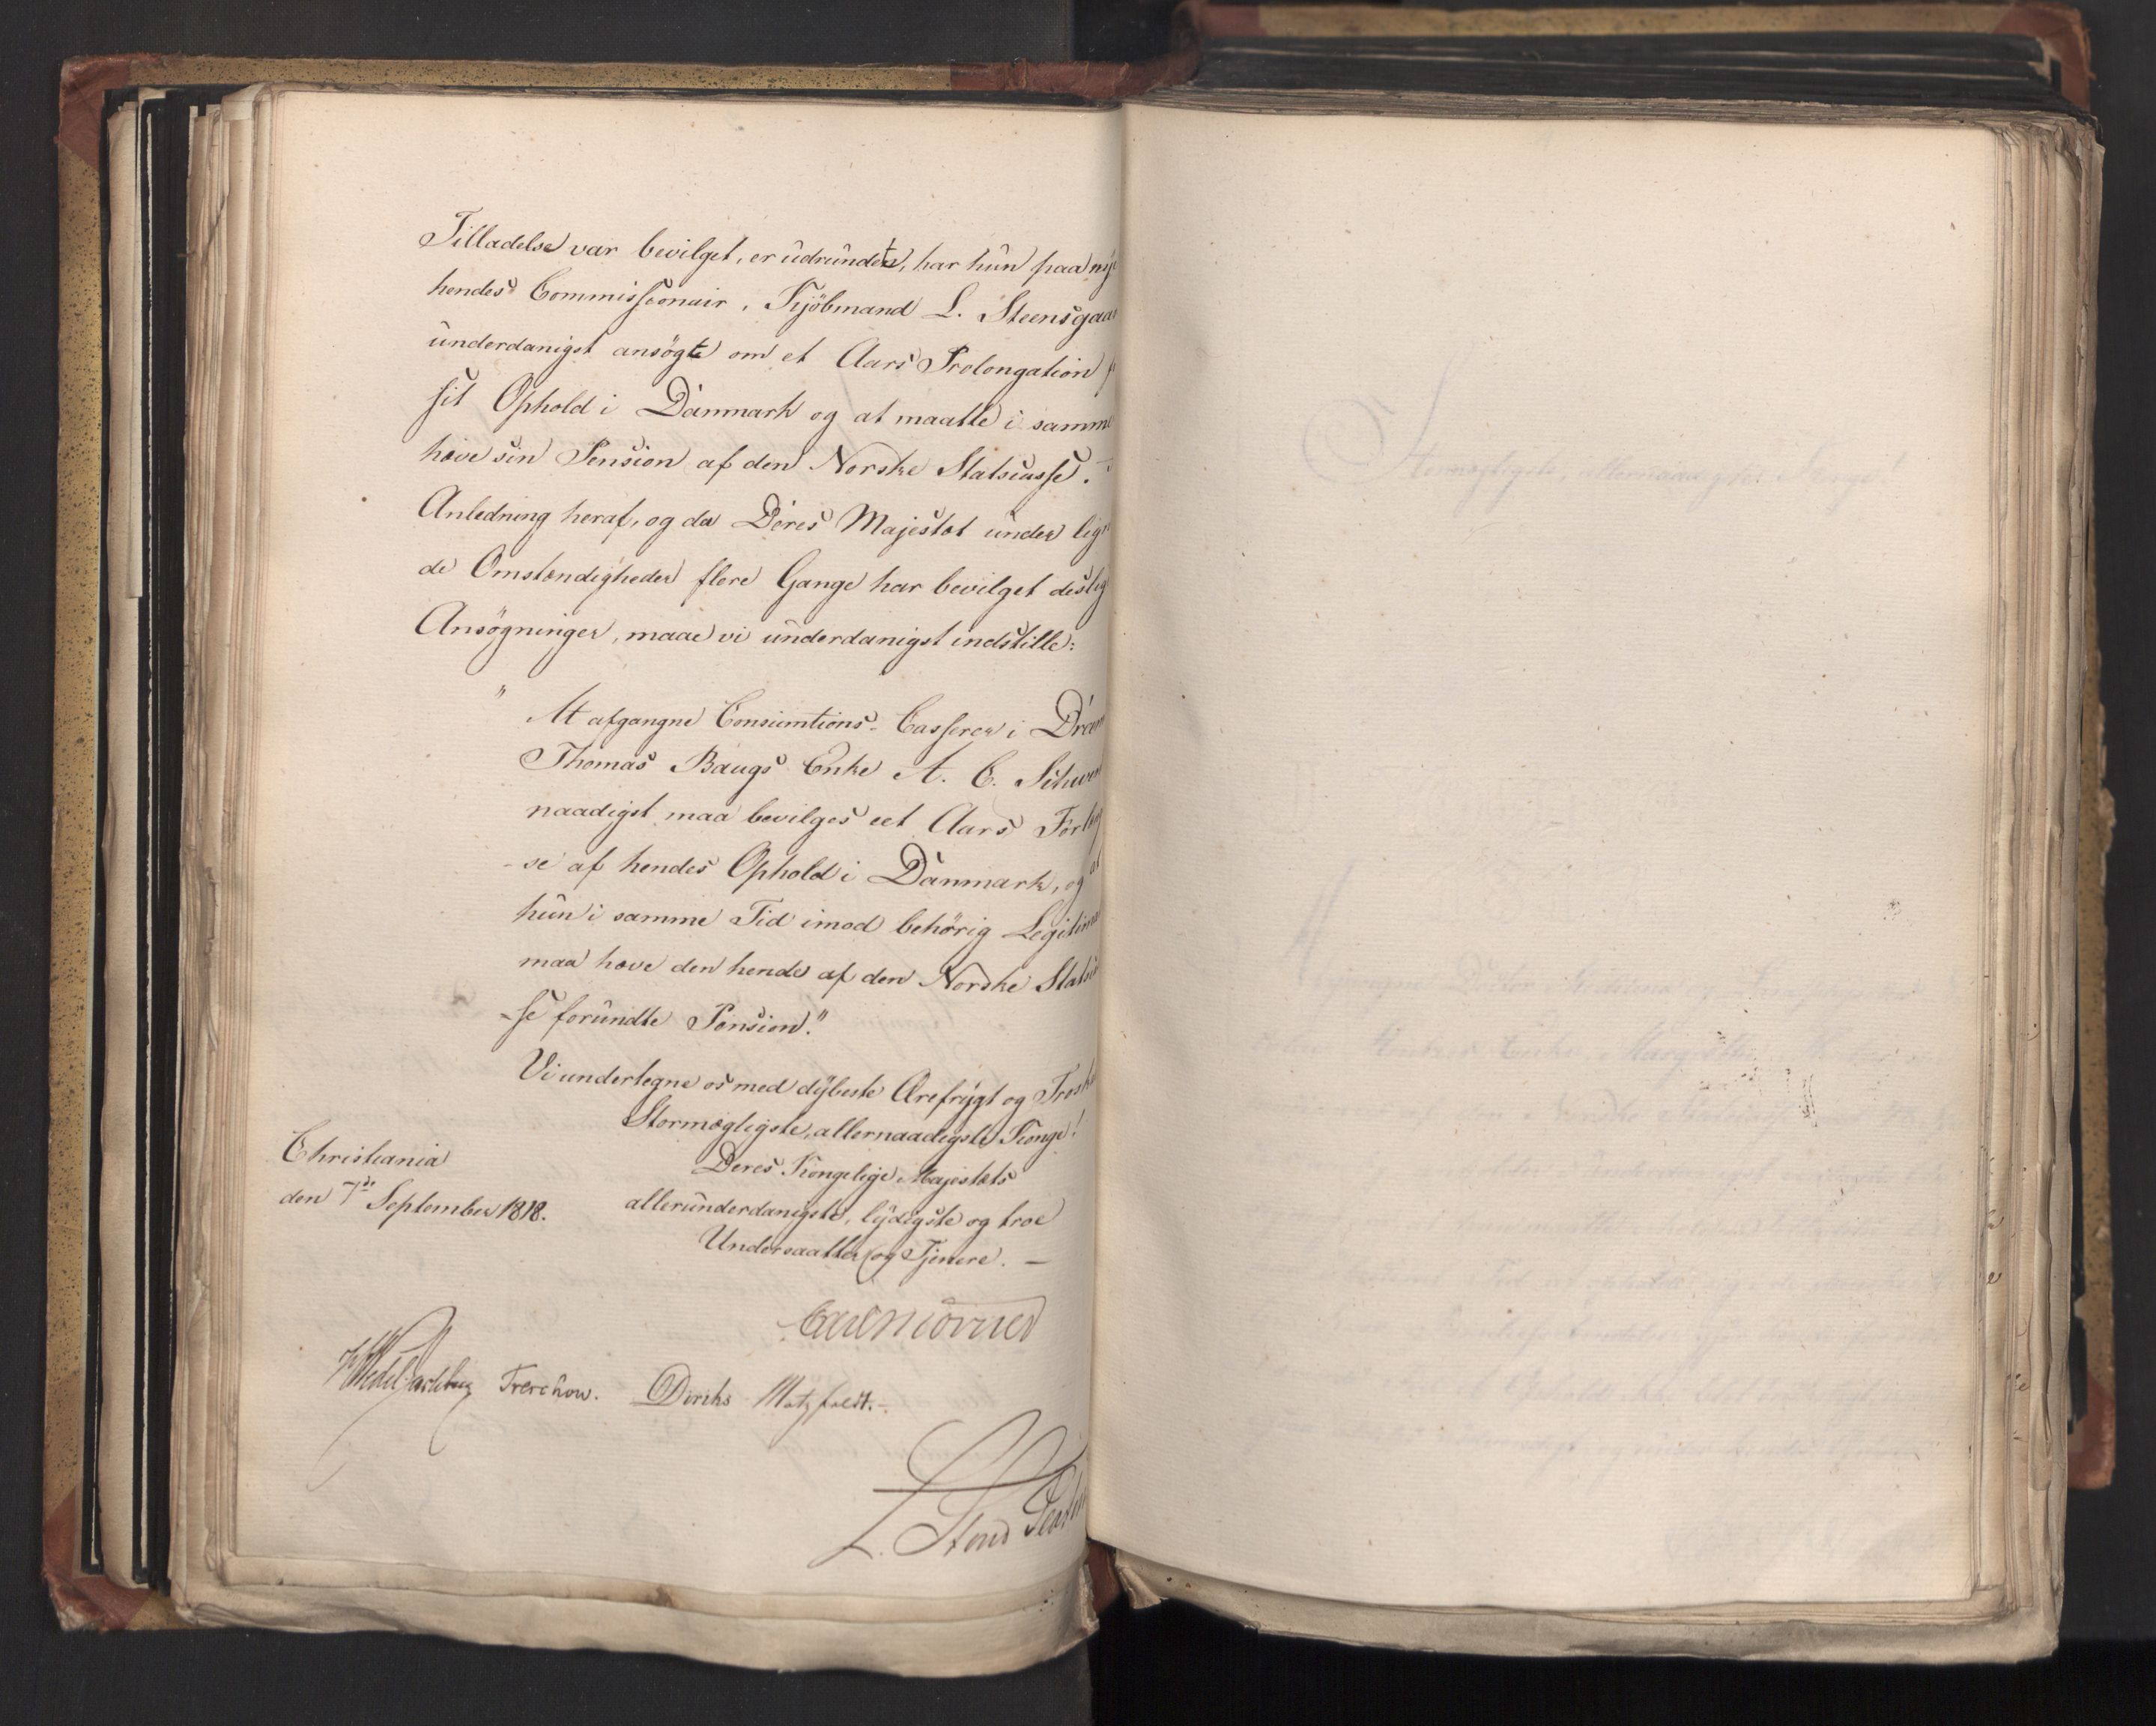 Tilladelse var bevilget, er udrundet, har hun paa nye
hendes Commissionair, Kjöbmand L. Steensgaar
underdanigst ansögte om et Aars Prolongation
sit Ophold i Danmark og at maatte i samme
hæve sin Pension af den Norske Statscasse.
Anledning heraf, og da Deres Majestæt under lign
de Omstændigheder flere Gange har bevilget deslig
Ansögninger, maae vi underdanigst indstille:
" At afgangne Consumtions-Casserer i Dram
Thomas Baugs Enke A. C.
naadigst maa bevilges eet Aars Forlæng
-se af hendes Ophold i Danmark, og at
hun i samme Tid imod behörig Legitima
maa hæve den hende af den Norske Statsca
-se forundte Pension."
Vi undertegne os med dybeste Ærefrygt og Troska
Stormægtigste, allernaadigste Konge!
Deres Kongelige Majestæts
allerunderdanigste, lydigste og troe
Undersaatter og Tjenere. —
Christiania
den 7de September 1818.
Carl Mörner
H Wedel Jarlsberg Treschow. Diriks Motzfeldt.
L.
Stormægtigste, allernaadigste Konge!